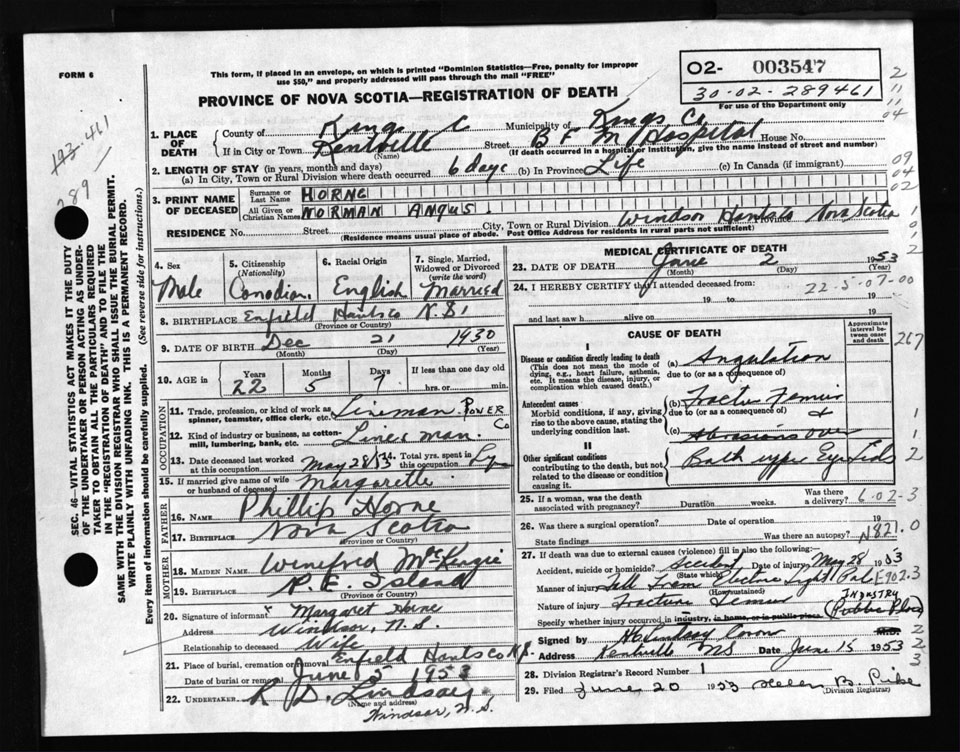 FORM 6
This form, if placed in an envelope, on which is printed "Dominion Statistics—Free, penalty for improper
use $50," and properly addressed will pass through the mail "FREE"
PROVINCE OF NOVA SCOTIA—REGISTRATION OF DEATH
02- 003547
30-02-289461
For use of the Department only
2
11
11
04
09
04
02
SEC. 46—VITAL STATISTICS ACT MAKES IT THE DUTY
OF THE UNDERTAKER OR PERSON ACTING AS UNDER-
TAKER TO OBTAIN ALL THE PARTICULARS REQUIRED
IN THE "REGISTRATION OF DEATH" AND TO FILE THE
SAME WITH THE DIVISION REGISTRAR WHO SHALL ISSUE THE BURIAL PERMIT.
WRITE PLAINLY WITH UNFADING INK. THIS IS A PERMANENT RECORD.
Every item of information should be carefully supplied. (See reverse side for instructions.)
1. PLACE OF DEATH County of Kings C Municipality of Kings Co
If in City or Town Kentville Street B F M Hospital House No.
(Name) (If death occurred in a hospital or institution, give the name instead of street and number)
2. LENGTH OF STAY (in years, months and days)
(a) In City, Town or Rural Division where death occurred 6 days (b) In Province Life (c) In Canada (if immigrant)
3. PRINT NAME OF DECEASED Surname or Last Name HORNE
All Given or Christian Names NORMAN ANGUS
RESIDENCE No. Street City, Town or Rural Division Windsor Hants Co Province Nova Scotia
(Residence means usual place of abode. Post Office Address for residents in rural parts not sufficient)
4. Sex Male
5. Citizenship (Nationality) Canadian
6. Racial Origin English
7. Single, Married, Widowed or Divorced (write the word) Married
8. BIRTHPLACE Enfield Hants Co N.S.
(Province or Country)
9. DATE OF BIRTH Dec 21 1930
(Month) (Day) (Year)
10. AGE in Years 22 Months 5 Days If less than one day old hrs. or min.
OCCUPATION
11. Trade, profession, or kind of work as spinner, teamster, office clerk, etc. Lineman Power Co
12. Kind of industry or business, as cotton-mill, lumbering, bank, etc. Lines man.
13. Date deceased last worked at this occupation May 28/53
14. Total yrs. spent in this occupation
15. If married give name of wife or husband of deceased Margarette
FATHER
16. NAME Phillip Horne
17. BIRTHPLACE Nova Scotia
(Province or Country)
MOTHER
18. MAIDEN NAME Winefred McKenzie
19. BIRTHPLACE P. E. Island
(Province or Country)
20. Signature of informant Margaret Horne
Address Windsor, N.S.
Relationship to deceased Wife
21. Place of burial, cremation or removal Enfield Hants Co N.S.
Date of burial or removal June 5 1953
22. UNDERTAKER R D. Lindsay
(Name and address)
Windsor, N.S.
MEDICAL CERTIFICATE OF DEATH
23. DATE OF DEATH June 2 1953
(Month) (Day) (Year)
24. I HEREBY CERTIFY that I attended deceased from:
22-5-07-00
19 to 19
and last saw h alive on 19
CAUSE OF DEATH
Approximate interval between onset and death
I
Disease or condition directly leading to death (a) Angulation
(This does not mean the mode of dying, e.g., heart failure, asthenia, etc. It means the disease, injury, or complication which caused death.)
due to (or as a consequence of)
Antecedent causes (b) Fractur Femur
Morbid conditions, if any, giving rise to the above cause, stating the underlying condition last.
due to (or as a consequence of) &
(c) Abrasions over
II
Other significant conditions Both upper Eyelids
contributing to the death, but not related to the disease or condition causing it.
267
25. If a woman, was the death associated with pregnancy? Duration weeks. Was there a delivery? 6-02-3
26. Was there a surgical operation? Date of operation 19
State findings Was there an autopsy? N821.0
27. If death was due to external causes (violence) fill in also the following:
Accident, suicide or homicide? Accident Date of injury May 28 1953
(State which)
Manner of injury Fall From Electric Light Pole E902.3
(How sustained)
Nature of injury Fracture Femur
Specify whether injury occurred in industry, in home, or in public place. INDUSTRY (Public Place)
Signed by M.D.
Address Kentville NS Date June 15 1953
28. Division Registrar's Record Number 1
29. Filed June 20 1953 Helen B. Pike
(Division Registrar)